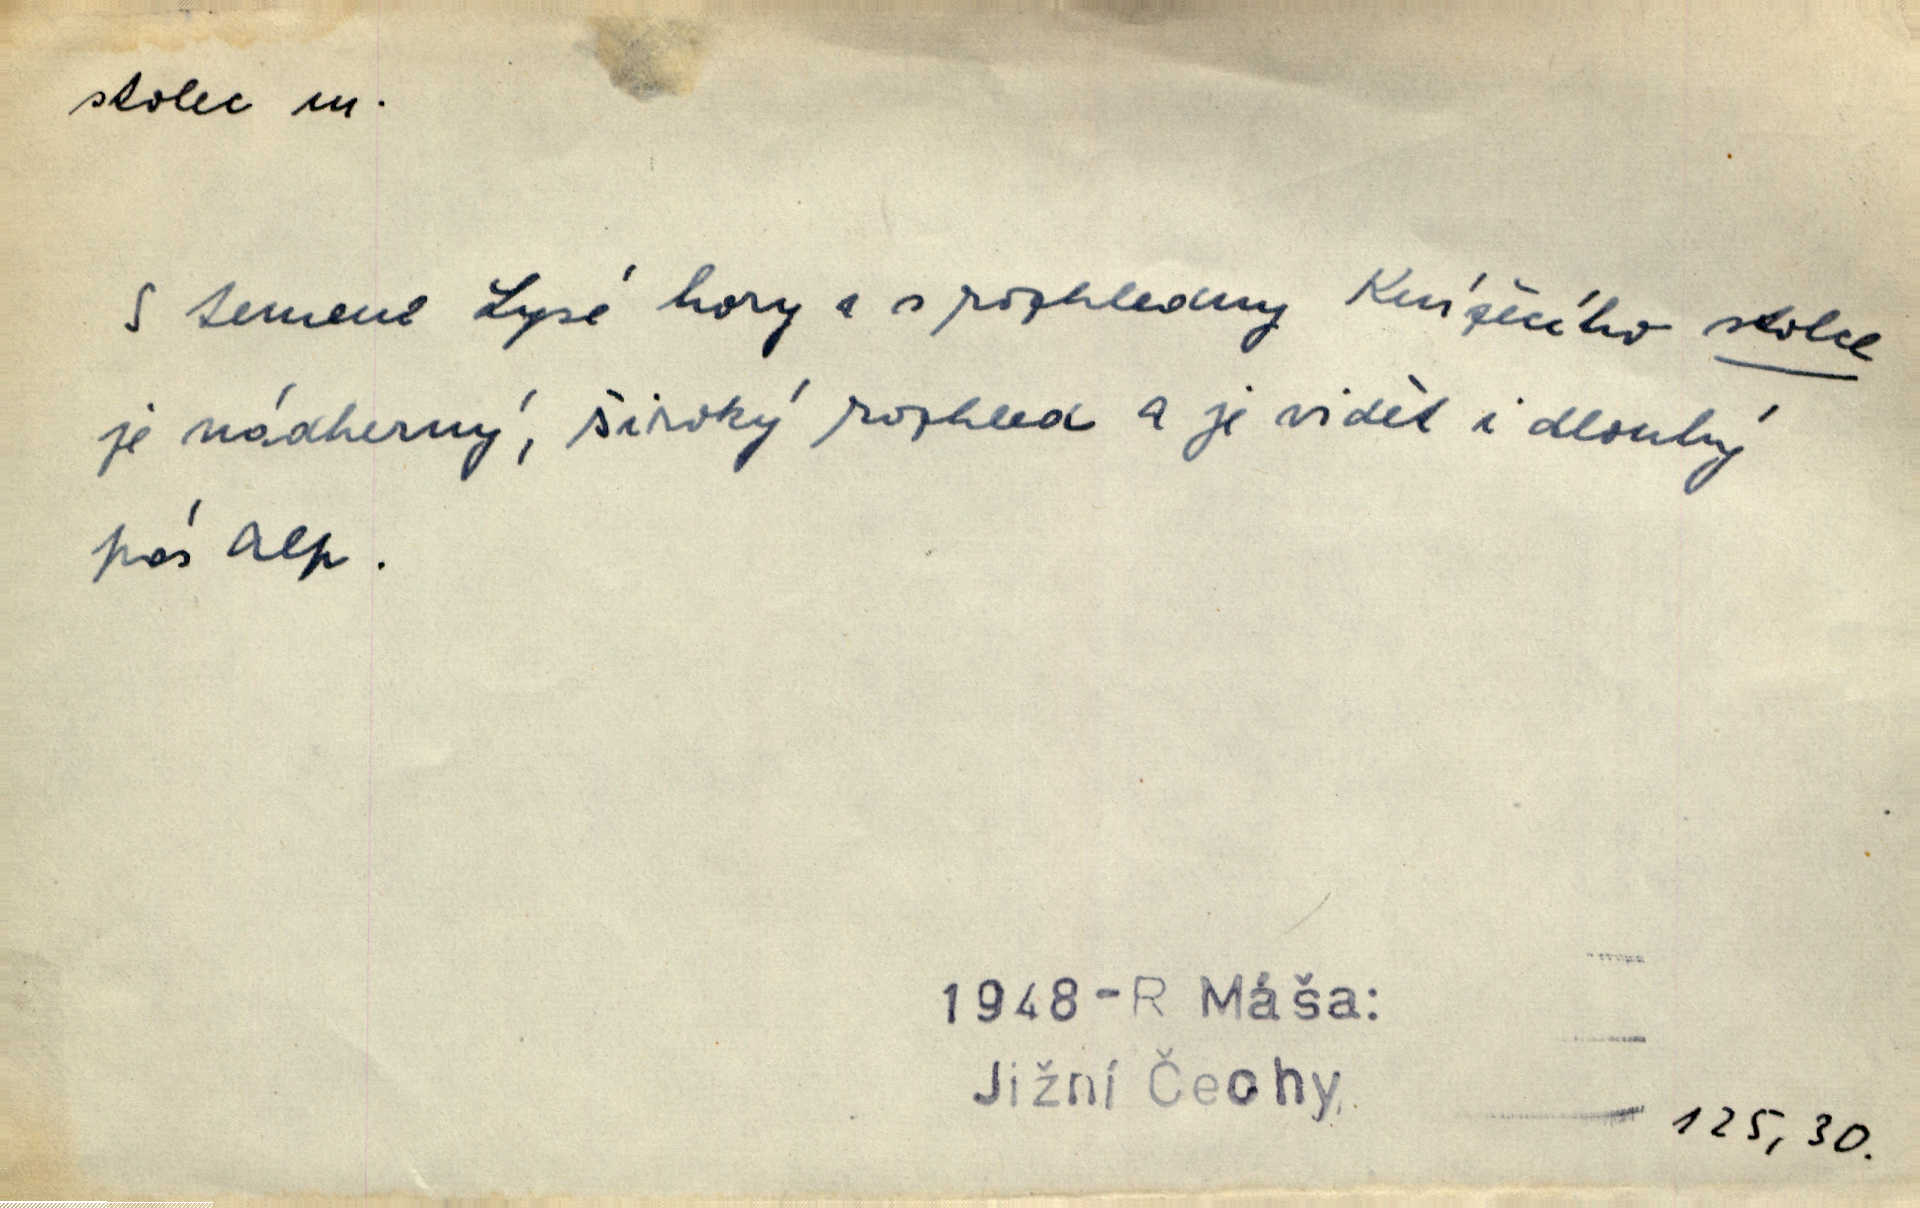 stolec m.
S temene Lysé hory a s rozhledny Knížecího stolce
je nádherný, široký rozhled a je vidět i dlouhý
pás Alp.
1948-R Máša:
Jižní Čechy,
125,30.